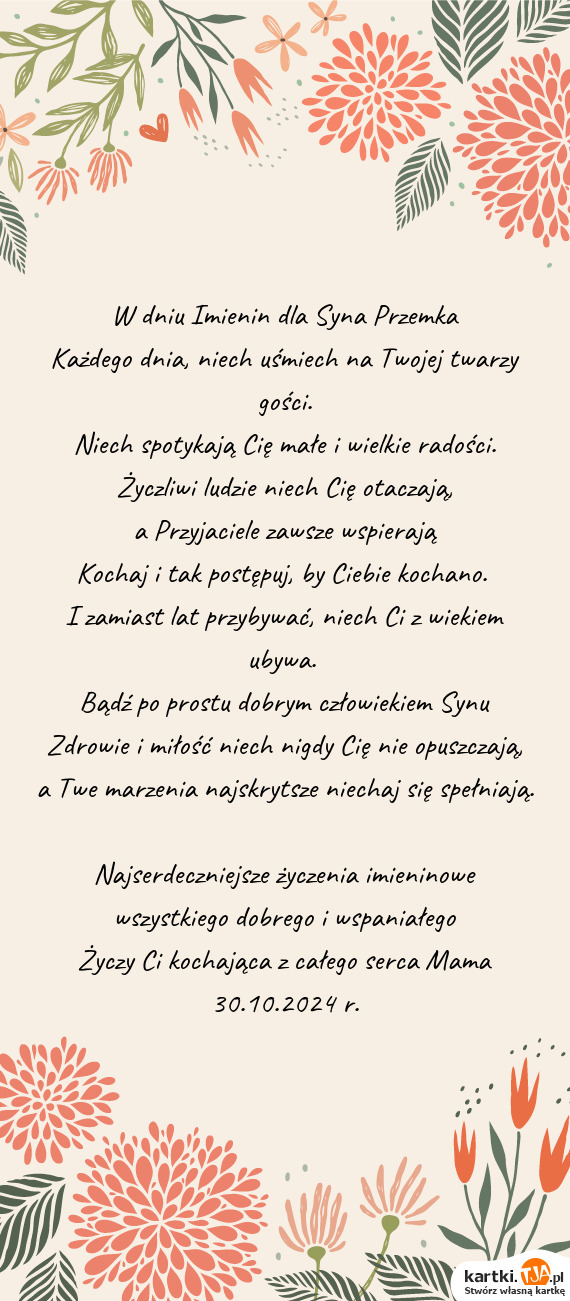 W dniu Imienin dla Syna Przemka
Każdego dnia, niech uśmiech na Twojej twarzy
gości.
Niech spotykają Cię małe i wielkie radości.
Życzliwi ludzie niech Cię otaczają,
a Przyjaciele zawsze wspierają
Kochaj i tak postępuj, by Ciebie kochano.
I zamiast lat przybywać, niech Ci z wiekiem
ubywa.
Bądź po prostu dobrym człowiekiem Synu
Zdrowie i miłość niech nigdy Cię nie opuszczają,
a Twe marzenia najskrytsze niechaj się spełniają.
Najserdeczniejsze życzenia imieninowe
wszystkiego dobrego i wspaniałego
Życzy Ci kochająca z całego serca Mama
30.10.2024 r.
kartki.TJA.pl
Stwórz własną kartkę